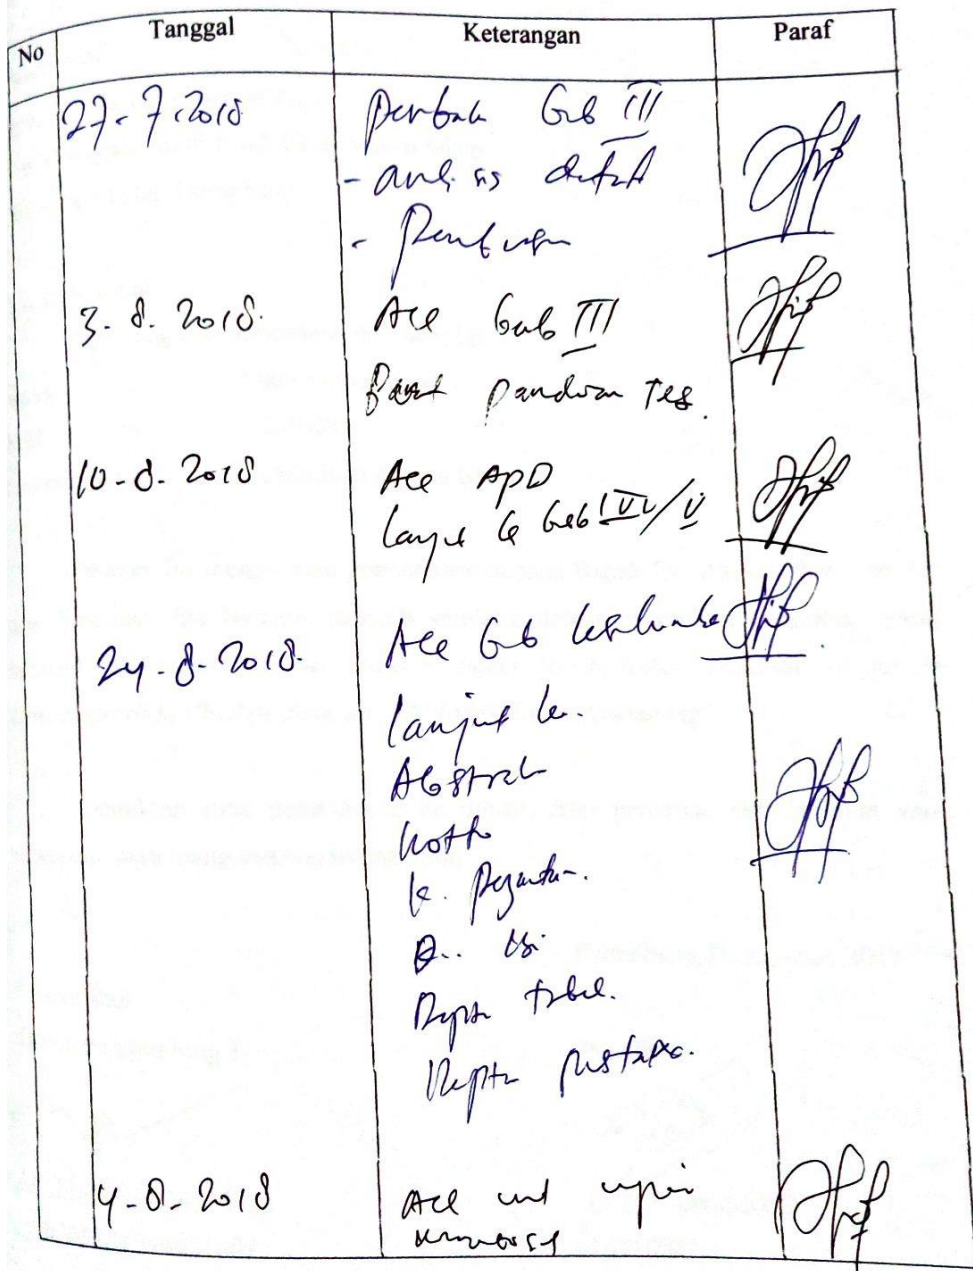 No Tanggal Keterangan Paraf
27-7-2018 Bab III
- analisis
-
3-8-2018 Acc Bab III
Buat panduan Tes.
10-8-2018 Acc APD
Lanjut ke Bab IV/V
24-8-2018 Acc Bab
lanjut ke.
Abstrak
Motto
k. Pengantar.
D. Isi
Daftar tabel.
Daftar pustaka.
4-8-2018 Acc unt ujian